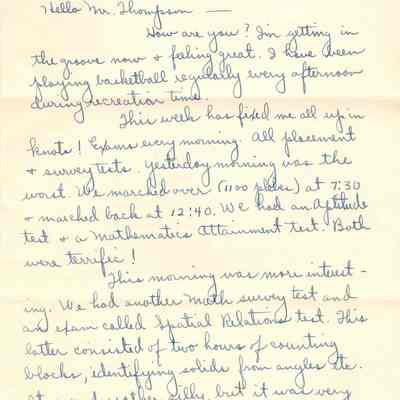 Hello Mr. Thompson —
How are you? I'm getting in
the groove now & feeling great. I have been
playing basketball regularly every afternoon
during recreation time.
This week has fixed me all up in
knots! Exams every morning. All placement
& survey tests. Yesterday morning was the
worst. We marched over (1100 plebes) at 7:30
& marched back at 12:40. We had an Aptitude
test & a Mathematics Attainment test. Both
were terrific!
This morning was more interest-
ing. We had another Math survey test and
an exam called Spatial Relations test. This
latter consisted of two hours of counting
blocks, identifying solids from angles etc.
silly, but it was very